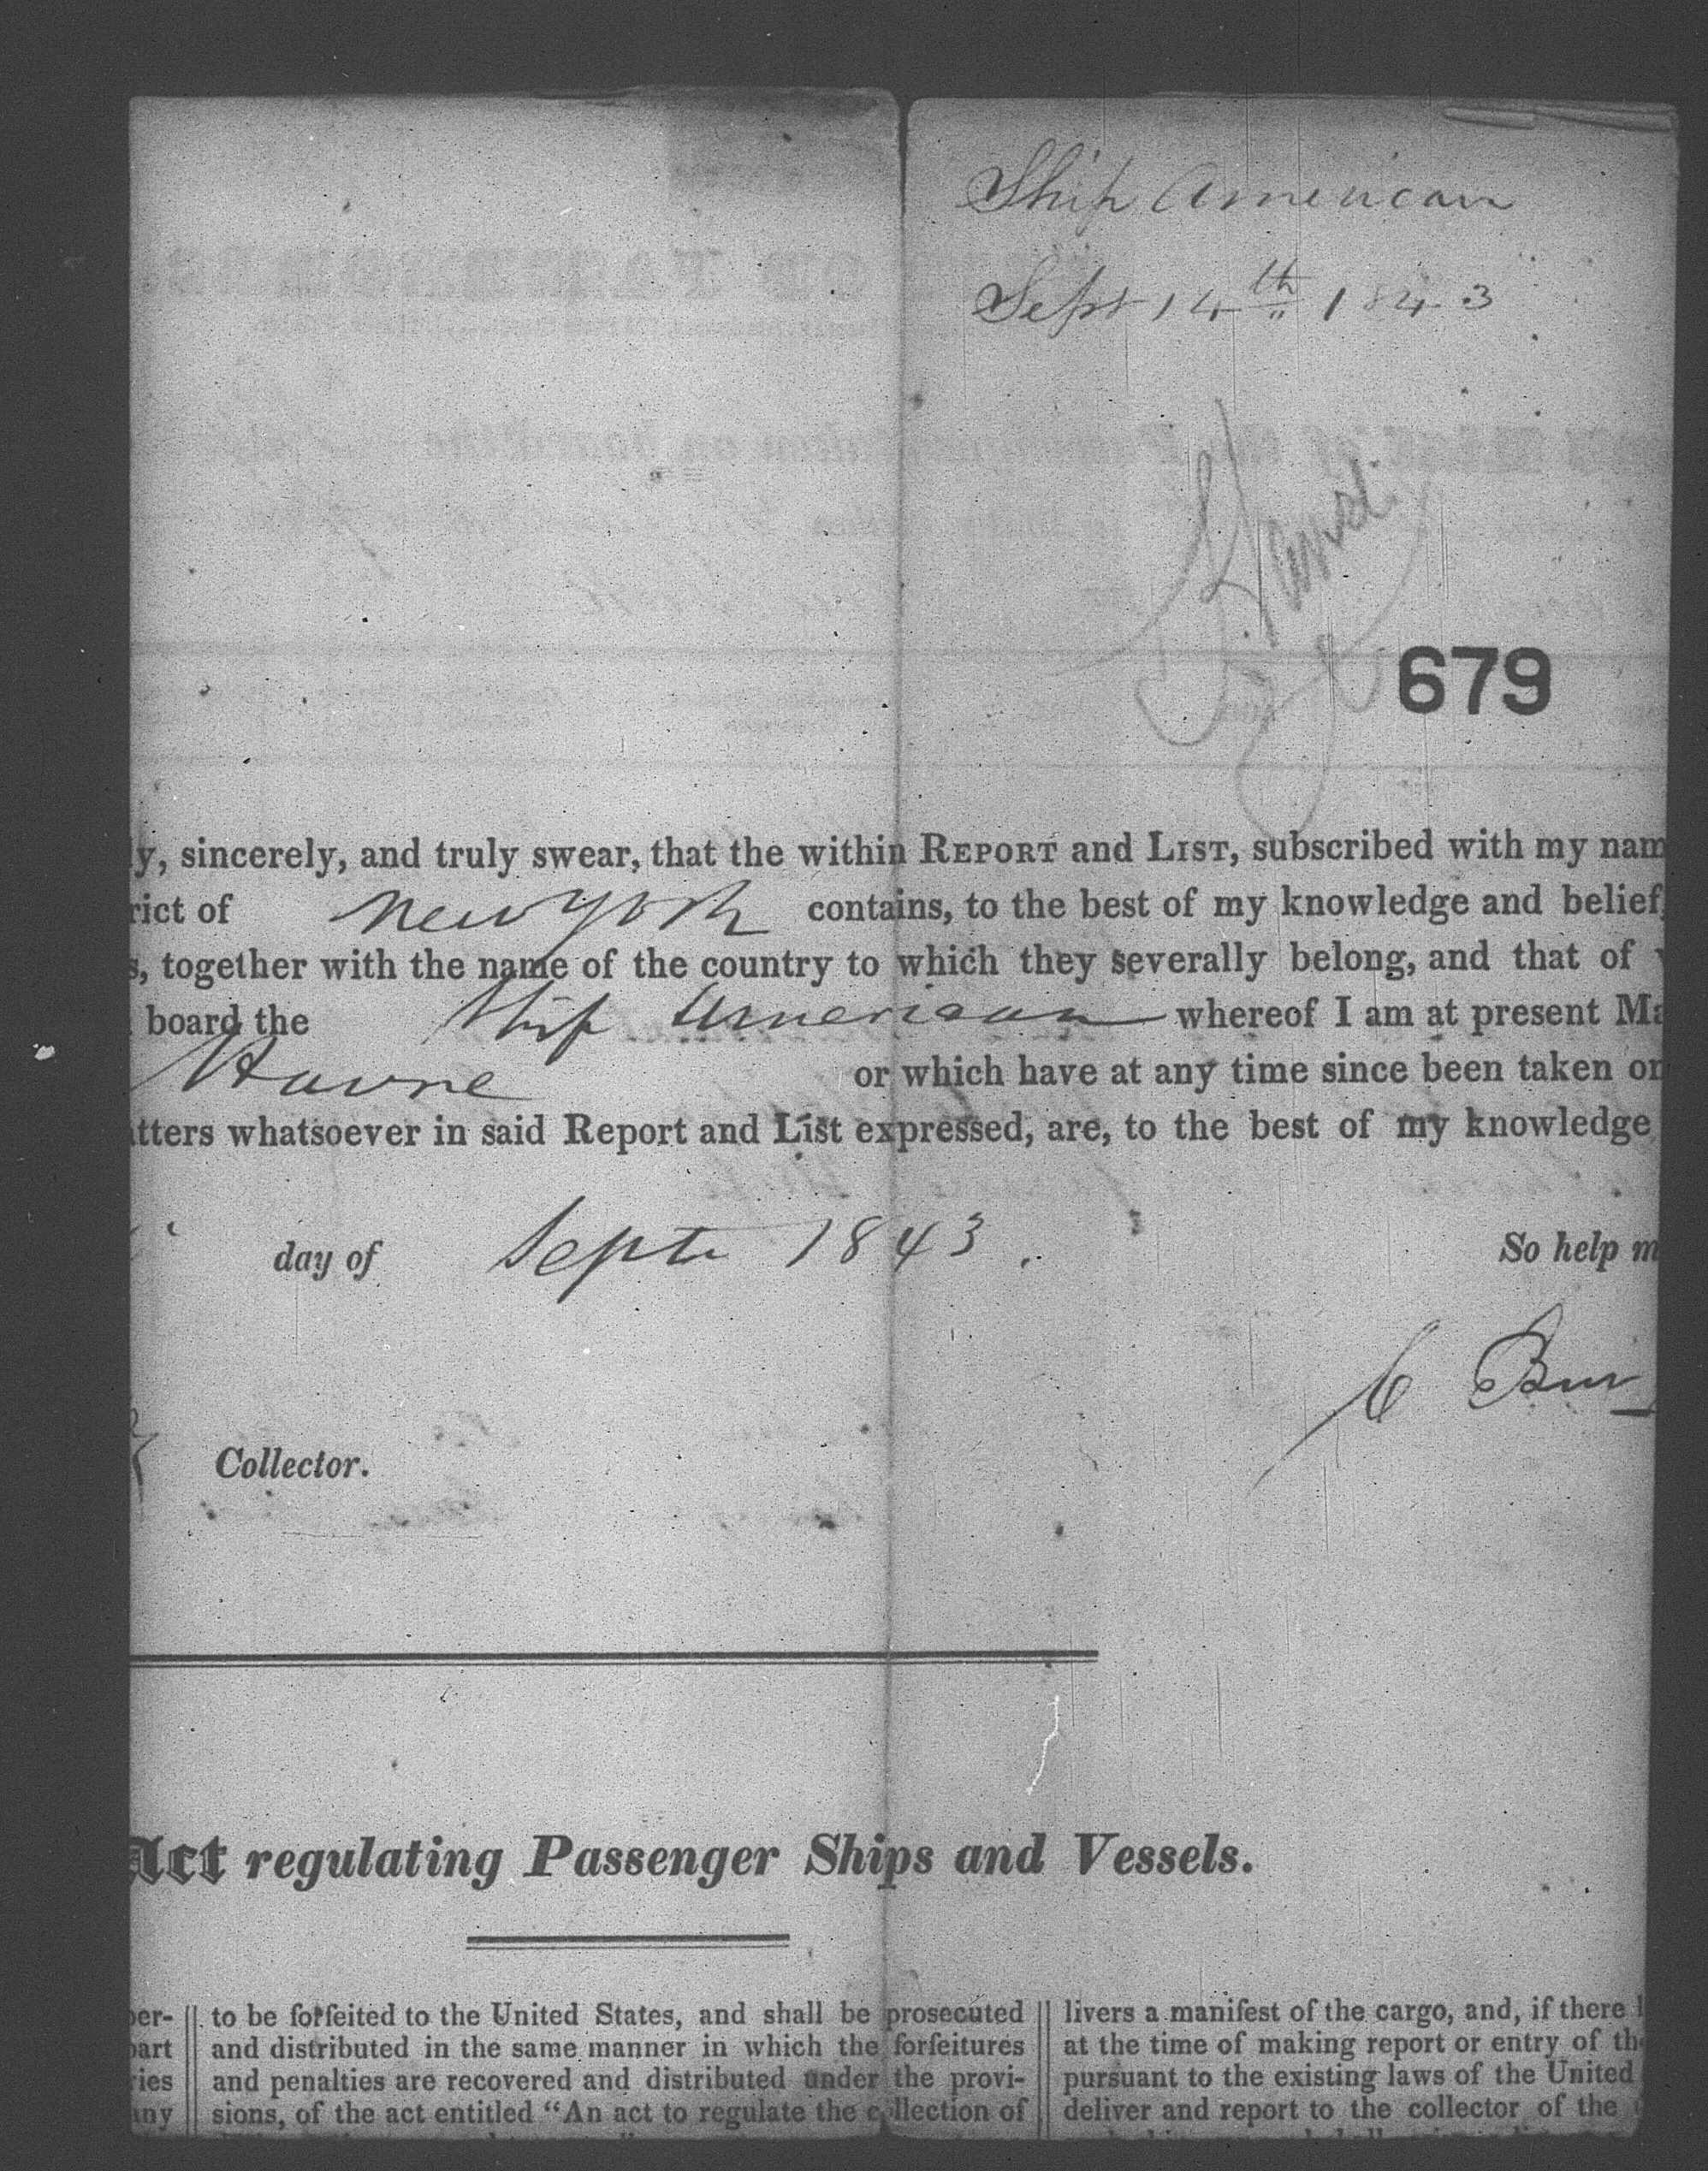 Ship American
Sept 14th 1843
679
y, sincerely, and truly swear, that the within REPORT and LIST, subscribed with my nam
rict of New York contains, to the best of my knowledge and belief,
s, together with the name of the country to which they severally belong, and that of
board the Ship American whereof I am at present Ma
Havre or which have at any time since been taken on
tters whatsoever in said Report and List expressed, are, to the best of my knowledge
day of Septr 1843. So help m
C Bur
Collector.
Act regulating Passenger Ships and Vessels.
per-
part
ries
any
to be forfeited to the United States, and shall be prosecuted
and distributed in the same manner in which the forfeitures
and penalties are recovered and distributed under the provi-
sions, of the act entitled “An act to regulate the collection of
livers a manifest of the cargo, and, if there
at the time of making report or entry of th
pursuant to the existing laws of the United
deliver and report to the collector of the